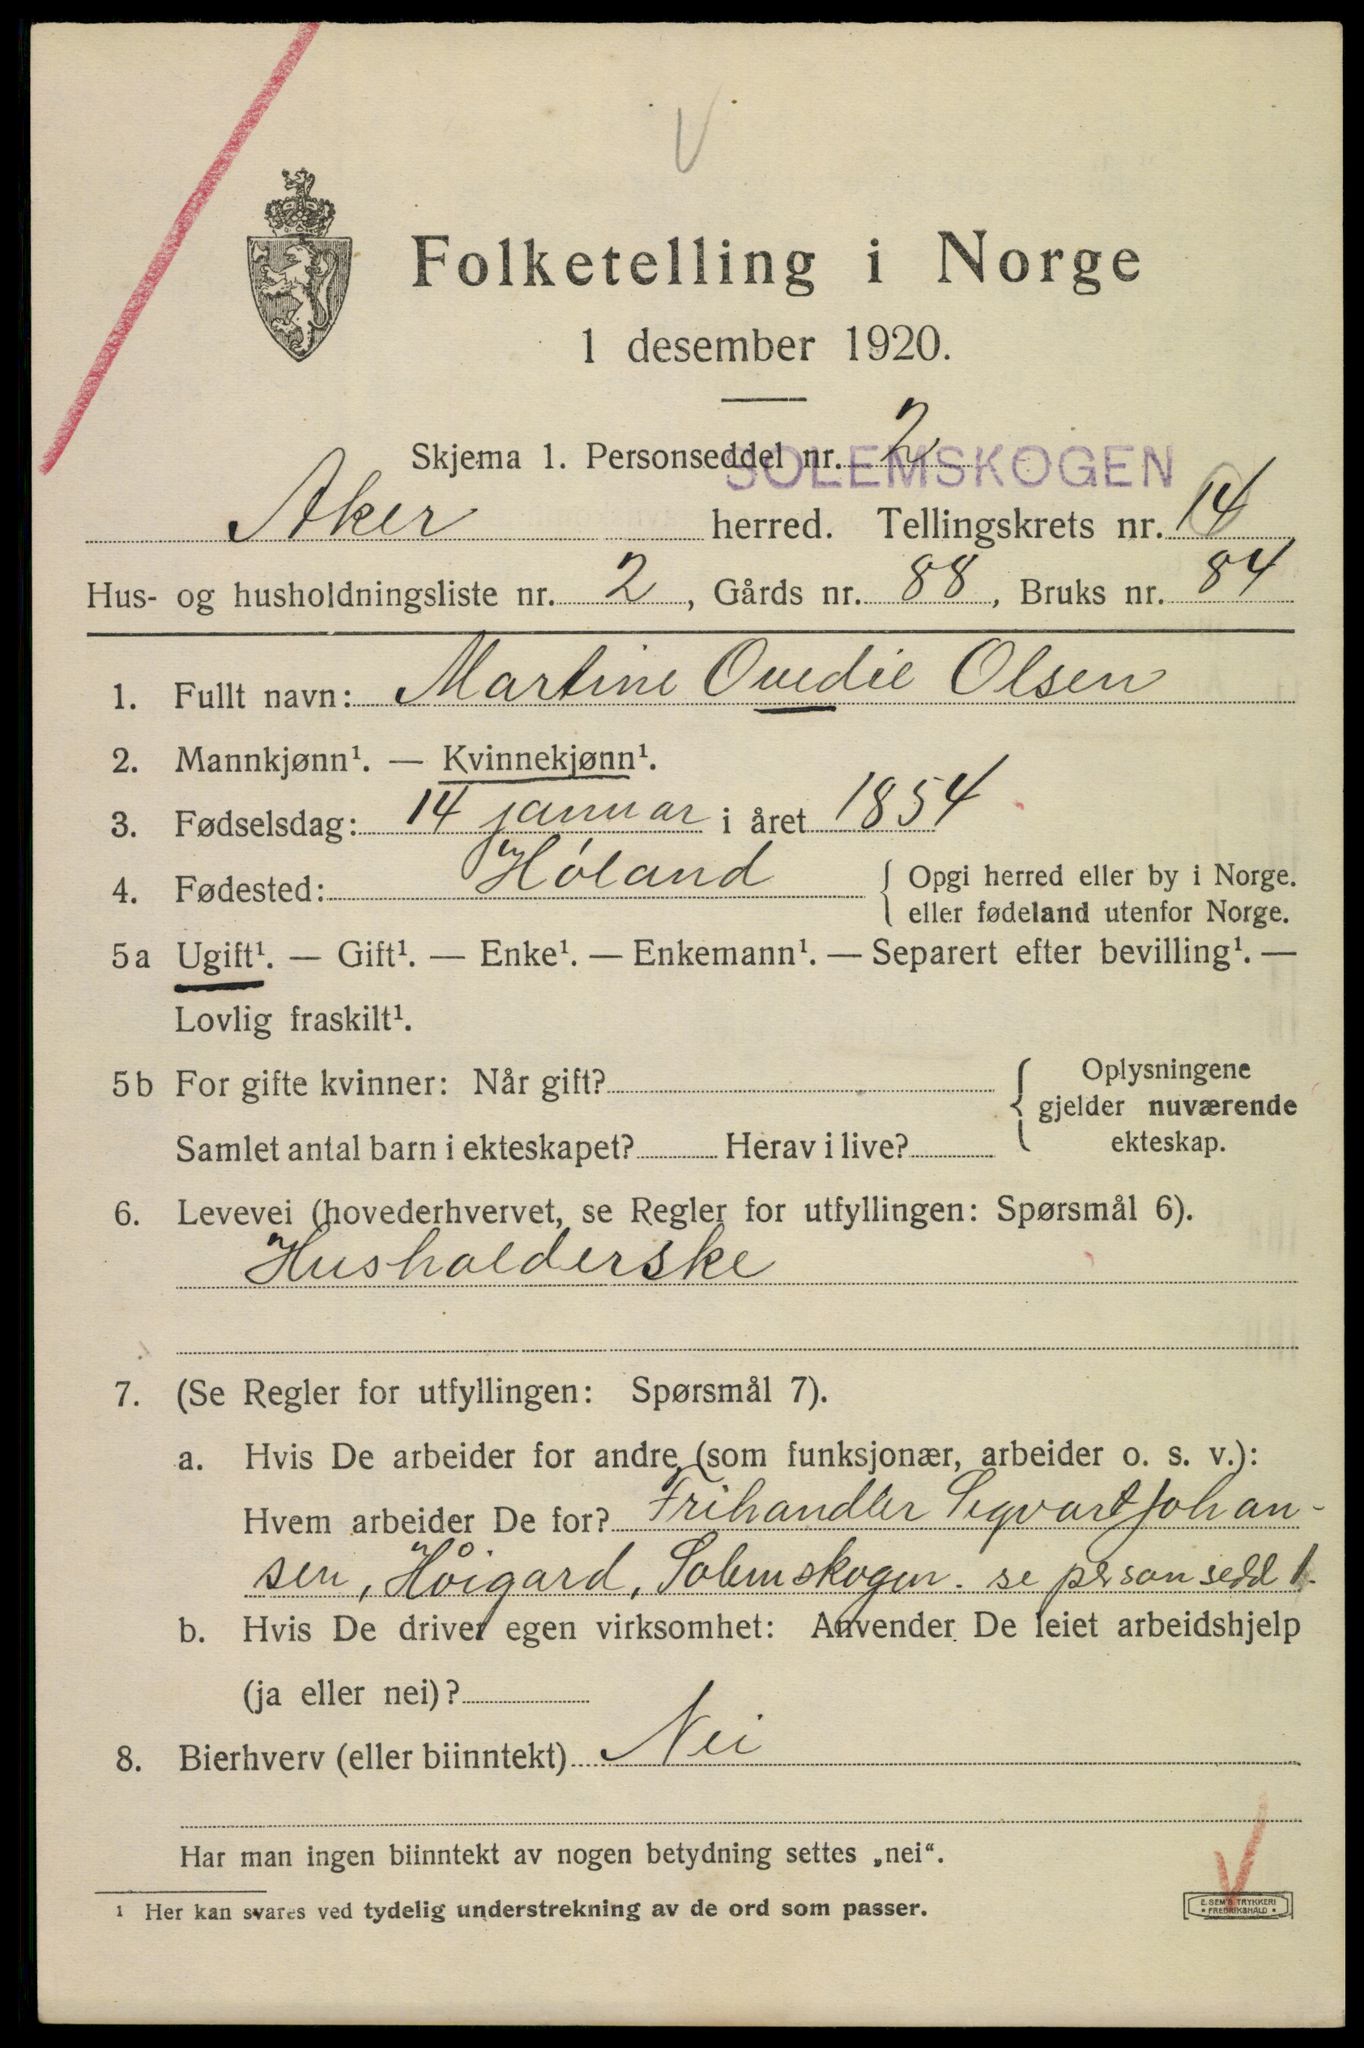 Folketelling i Norge
1 desember 1920.
Skjema 1. Personseddel nr. 2
SOLEMSKOGEN
Aker herred. Tellingskrets nr. 14
Hus- og husholdningsliste nr. 2, Gårds nr. 88, Bruks nr. 84
1. Fullt navn: Martine Ovedie Olsen
2. Mannkjønn¹. — Kvinnekjønn¹.
3. Fødselsdag: 14 januar i året 1854
4. Fødested: Høland { Opgi herred eller by i Norge.
eller fødeland utenfor Norge.
5a Ugift¹. — Gift¹. — Enke¹. — Enkemann¹. — Separert efter bevilling¹. —
Lovlig fraskilt¹.
5b For gifte kvinner: Når gift? { Oplysningene
gjelder nuværende
Samlet antal barn i ekteskapet? Herav i live? ekteskap.
6. Levevei (hovederhvervet, se Regler for utfyllingen: Spørsmål 6).
Husholderske
7. (Se Regler for utfyllingen: Spørsmål 7).
a. Hvis De arbeider for andre (som funksjonær, arbeider o. s. v.):
Hvem arbeider De for? Frihandler Sigvart Johan-
sen, Høigard, Solemskogen. se personsedd 1.
b. Hvis De driver egen virksomhet: Anvender De leiet arbeidshjelp
(ja eller nei)?
8. Bierhverv (eller biinntekt) Nei
Har man ingen biinntekt av nogen betydning settes „nei“.
¹ Her kan svares ved tydelig understrekning av de ord som passer.
E. SEM'S TRYKKERI
* FREDRIKSHALD *